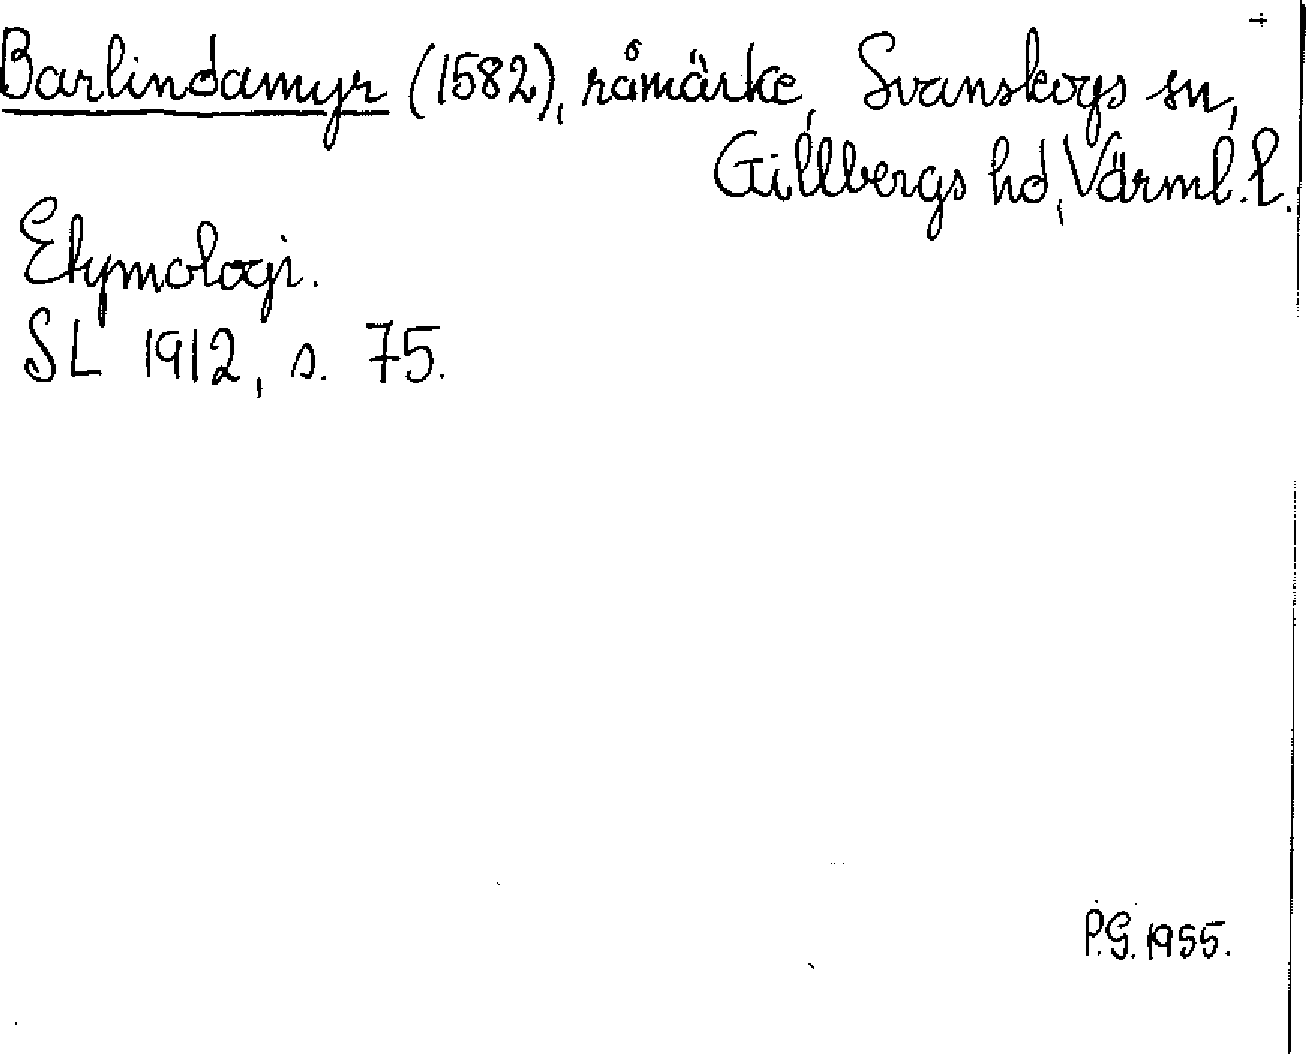 Barlindamyr (1582), råmärke, Svanskogs sn,
Gillbergs hd, Värml. l.
Etymologi.
SL 1912, s. 75.
P.G. 1955.